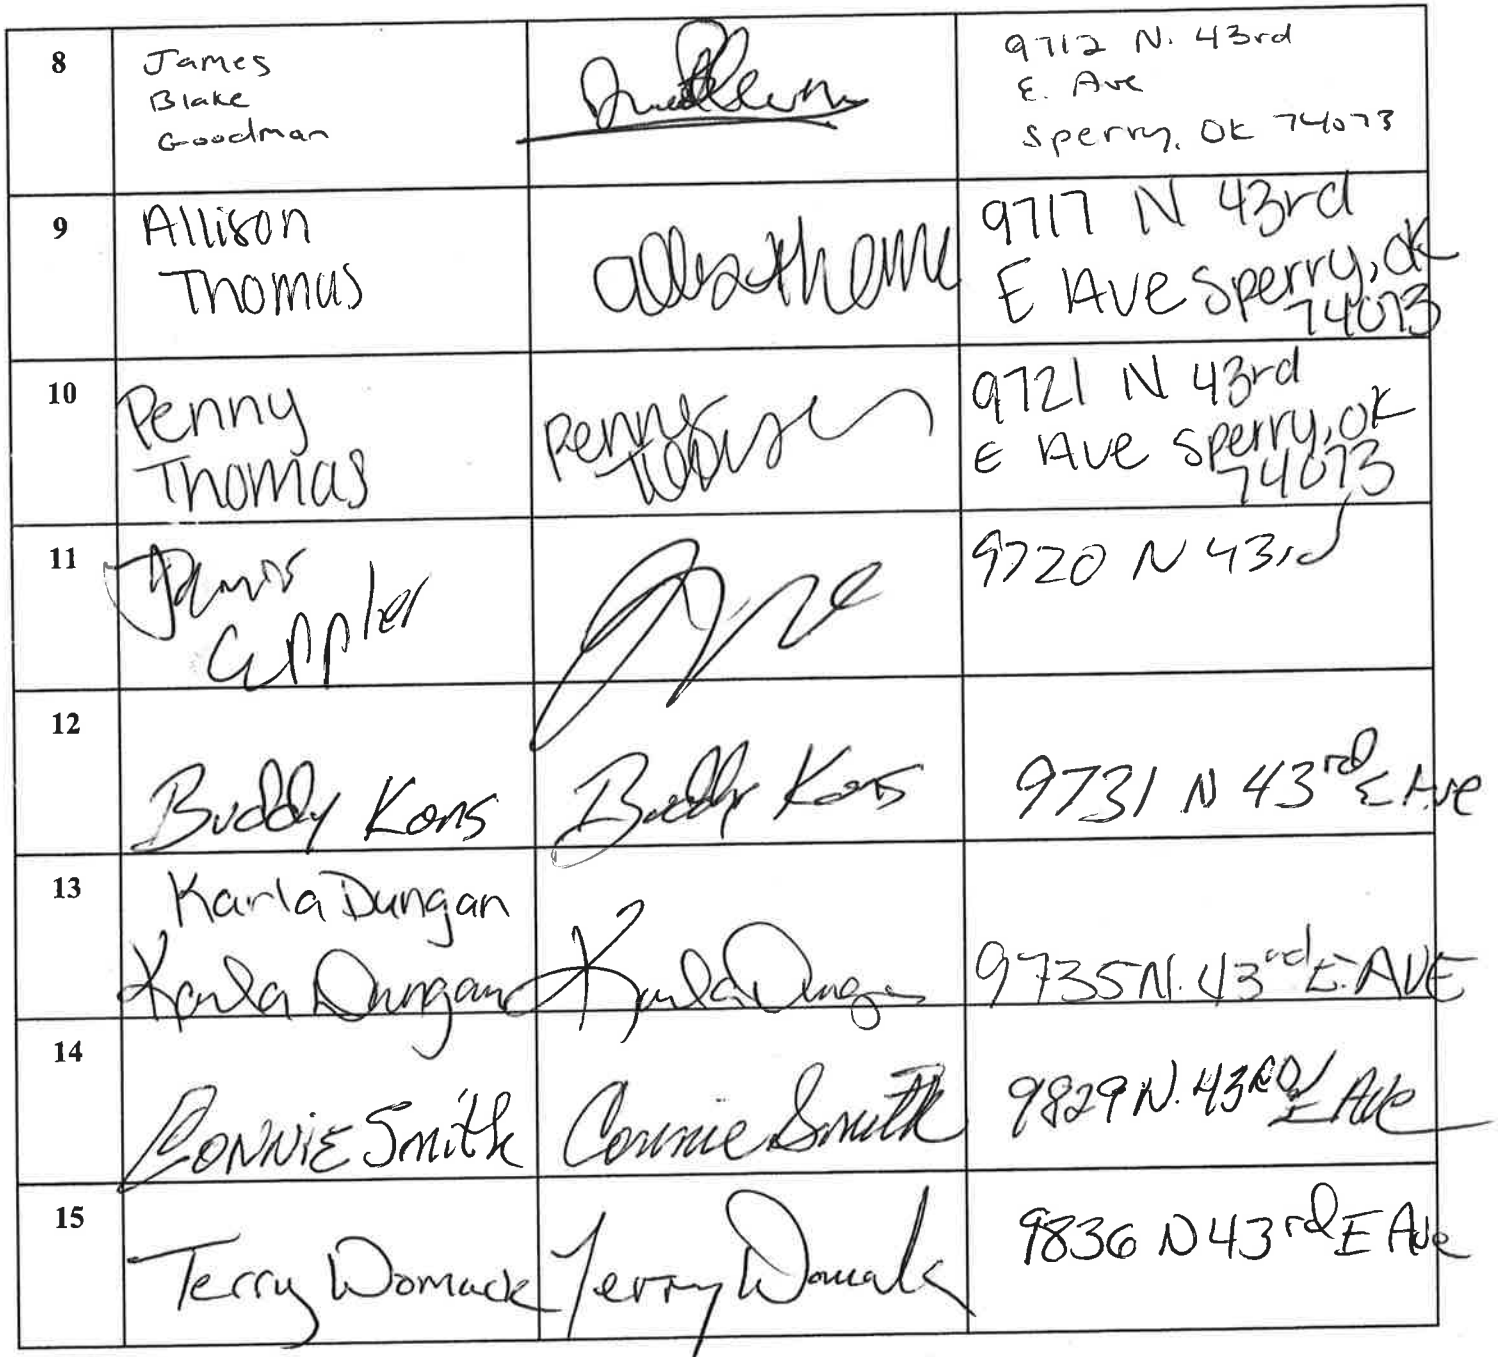 8
James
Blake
Goodman
9712 N. 43rd
E. Ave
Sperry, OK 74073
9
Allison
Thomas
9717 N 43rd
E Ave Sperry, OK
74073
10
Penny
Thomas
Penny
9721 N 43rd
E Ave Sperry, OK
74073
11
Cuppler
9720 N 43rd
12
Buddy Kons
Buddy Kons
9731 N 43rd E Ave
13
Karla Dungan
Karla Dungan
Karla Dungan
9735 N. 43rd E. AVE
14
Connie Smith
Connie Smith
9829 N. 43RD E Ave
15
Terry Womack
Terry Womack
9836 N 43rd E Ave